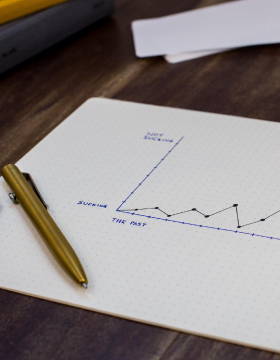 NOT
SUCKING
SUCKING
THE PAST